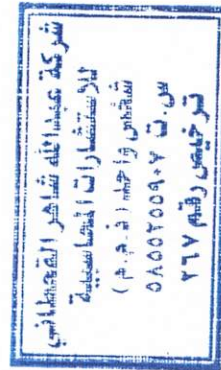 شركة عبدالله شاهر القحطاني
للاستشارات المحاسبية
شخص واحد ( ذ . م . م )
س . ت ٥٨٥٥٢٥٥٩٠٧
ترخيص رقم ٢٦٧